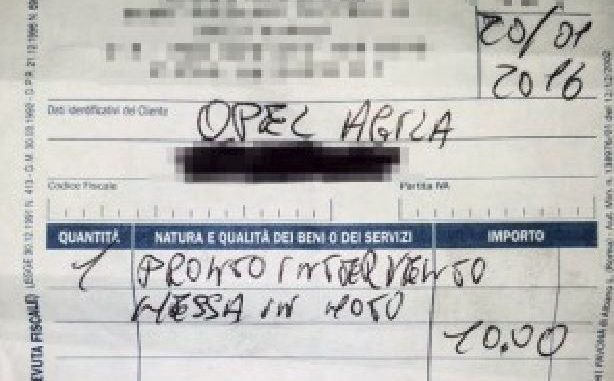 20/01
2016
Dati identificativi del Cliente
OPEL AGILA
Codice Fiscale
Partita IVA
QUANTITÀ NATURA E QUALITÀ DEI BENI O DEI SERVIZI IMPORTO
1 PRONTO INTERVENTO
MESSA IN MOTO
10.00
EVUTA FISCALE) (LEGGE 30.12.1991 N. 413 - D.M. 30.03.1992 - D.P.R. 21.12.1996 N.